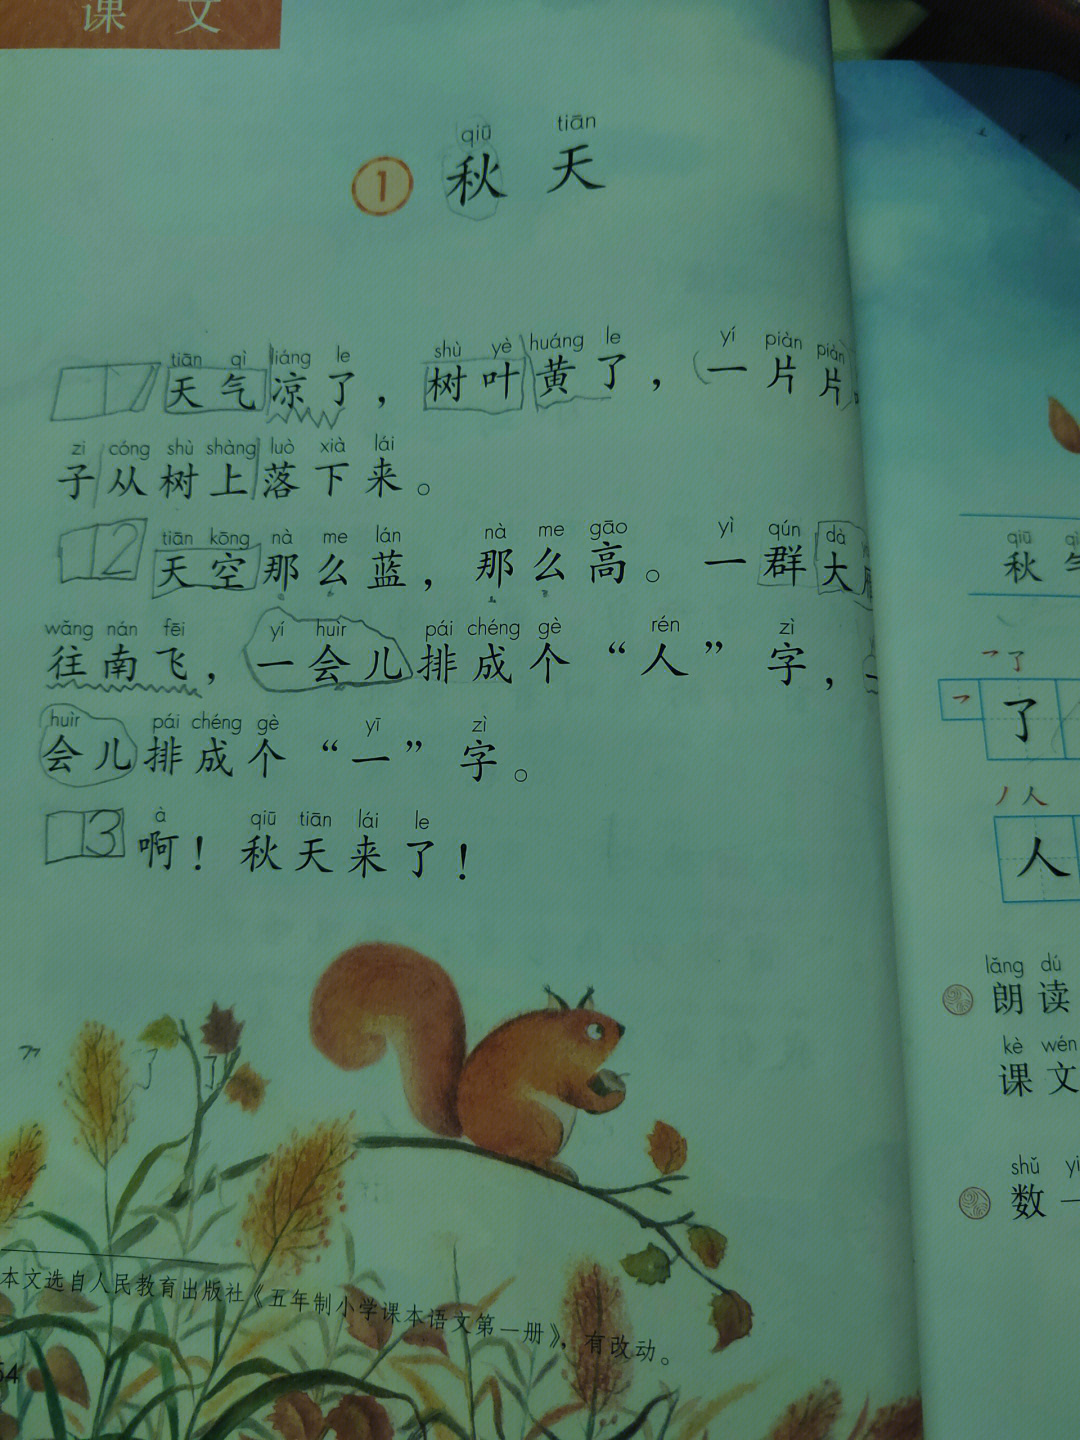 课 文
qiū tiān
1 秋 天
tiān qì liáng le shù yè huáng le yí piàn piàn
天 气 凉 了 ， 树 叶 黄 了 ， 一 片 片
zi cóng shù shàng luò xià lái
子 从 树 上 落 下 来 。
tiān kōng nà me lán nà me gāo yì qún dà
2 天 空 那 么 蓝 ， 那 么 高 。 一 群 大
wǎng nán fēi yí huìr pái chéng gè rén zì
往 南 飞 ， 一 会 儿 排 成 个 “ 人 ” 字 ， 一
huìr pái chéng gè yī zì
会 儿 排 成 个 “ 一 ” 字 。
à qiū tiān lái le
3 啊 ！ 秋 天 来 了 ！
了 了
本文选自人民教育出版社《五年制小学课本语文第一册》，有改动。
qiū
秋
乛 了
乛 了
丿 人
人
lǎng dú
朗 读
kè wén
课 文
shǔ yi
数 一